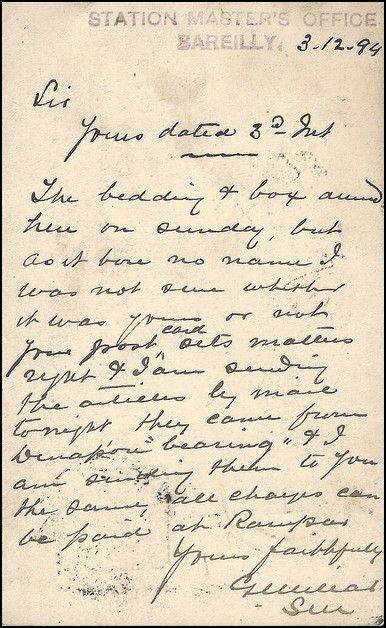 STATION MASTER'S OFFICE
BAREILLY. 3-12-94
Sir
Yours dated 3d Inst
The bedding & box arrived
here on sunday, but
as it bore no name I
was not sure whether
it was yours or not
your post card sets matters
right & I am sending
the articles by mail
tonight they came from
Dinapore "bearing" & I
am sending them to you
the same, all charges can
be paid at Rampur
Yours faithfully